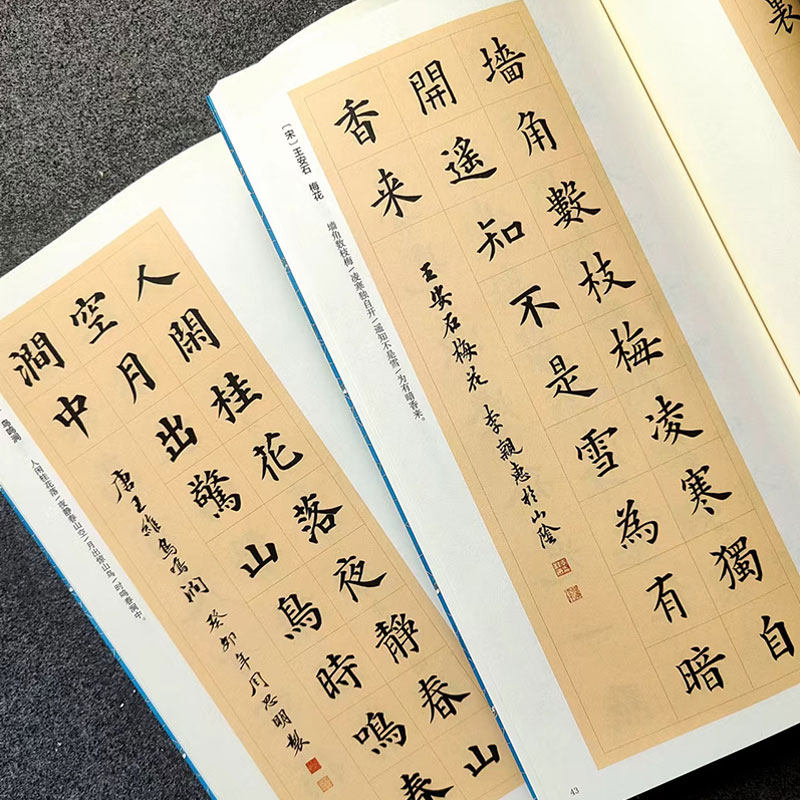 墙角數枝梅凌寒獨自
開遥知不是雪為有暗
香来
王安石梅花 李親惠於山陰
〔宋〕王安石 梅花
墙角数枝梅/凌寒独自开/遥知不是雪/为有暗香来。
43
製
人閑桂花落夜靜春山
空月出驚山鳥時鳴春
澗中
唐王維鳥鳴澗 癸卯年周思明製
鸟鸣涧
人闲桂花落/夜静春山空/月出惊山鸟/时鸣春涧中。